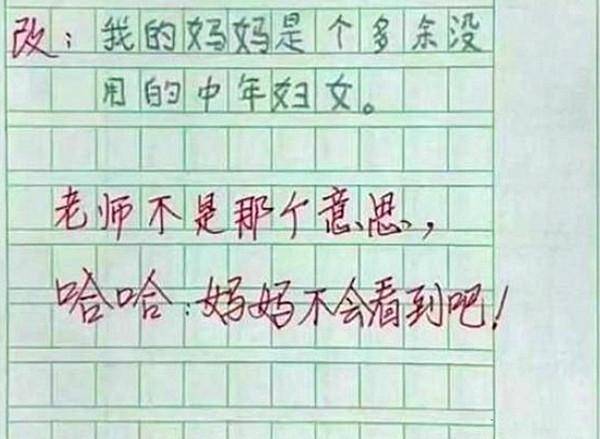 改：我的妈妈是个多余没
用的中年妇女。
老师不是那个意思，
哈哈：妈妈不会看到吧！